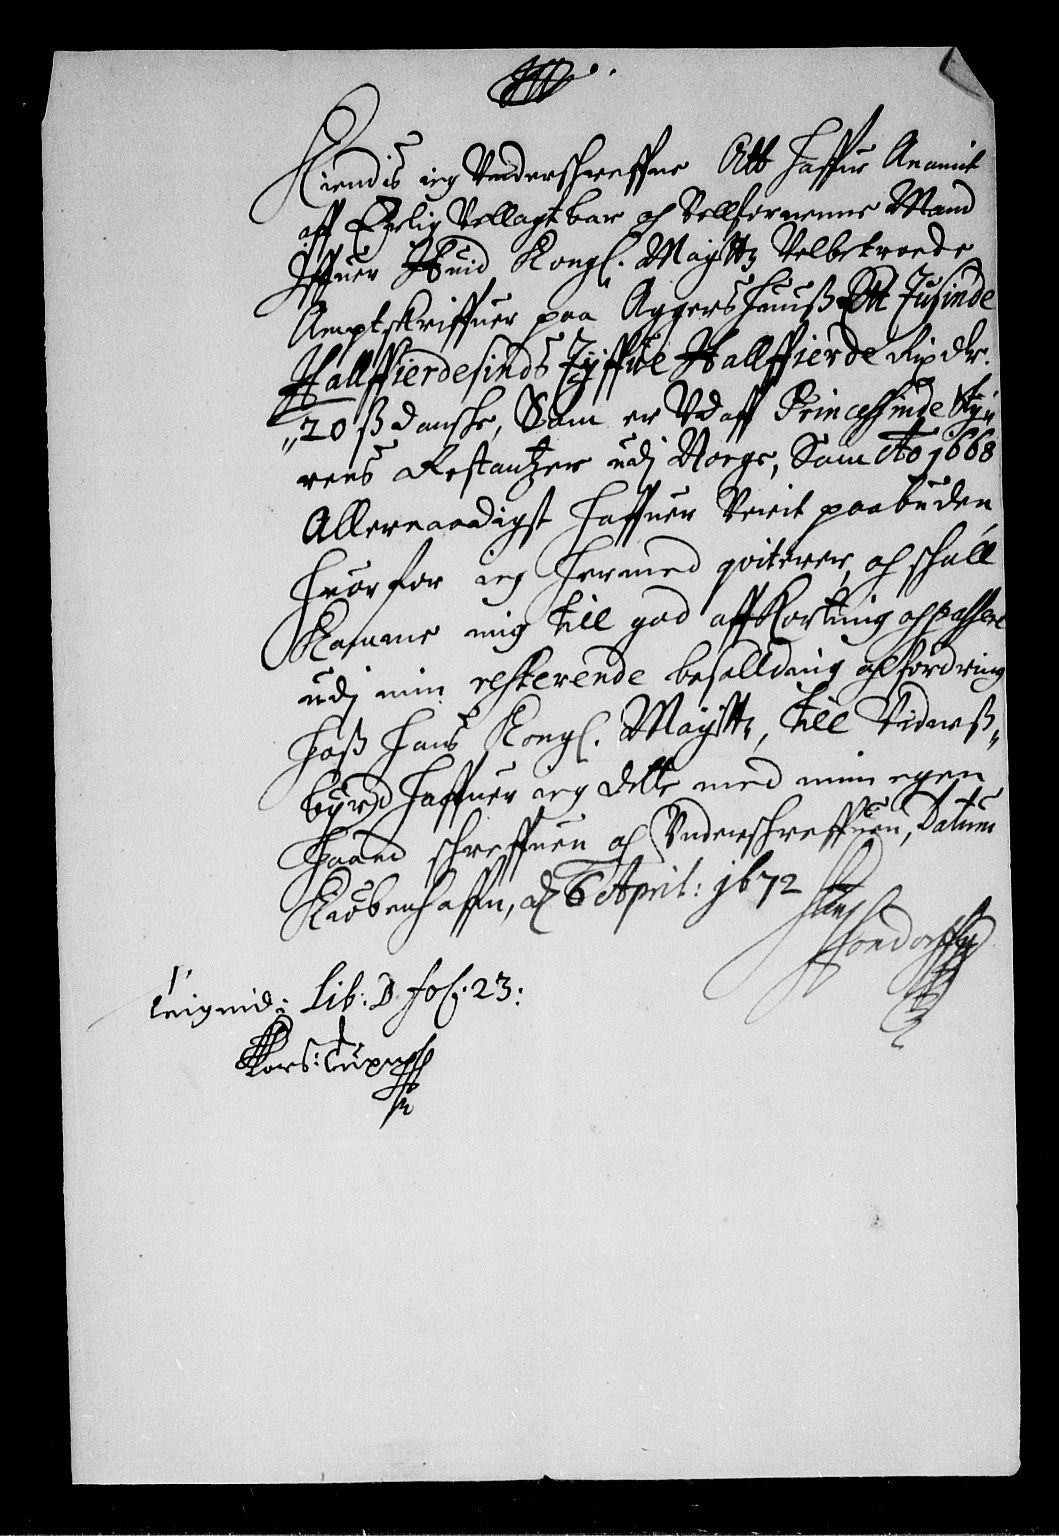 Kiendis ieg Vnderschreffne Att haffue Anamit
aff Erlig Vellagtbar och Vellfornemme Mand
Iffuer Huid Kongl. Maÿtts Velbetroede
Amptskriffuer paa Aggershuuß Ett Tusinde
Hallffierdesinds Tÿffue Hallffierde Rixdlr.
"20 ß danske, Som er Vdaff Princessinde Styü
rens Restantzer udj Norge, Som Ao 1668
Allernaadigst haffuer Verit paabuden
huorfor ieg hermed qviterer, och schall
Komme mig till god affkortning och passere
udj min resterende besolldning och fordring
hoß hans Kongl. Maÿtt, till Vidneß"
bÿrd haffuer ieg dette med min egen
haand schreffuen och Vnderschreffuen, Datum
Kiøbenhaffn, d 6 April: 1672
Lib: D. fol: 23: